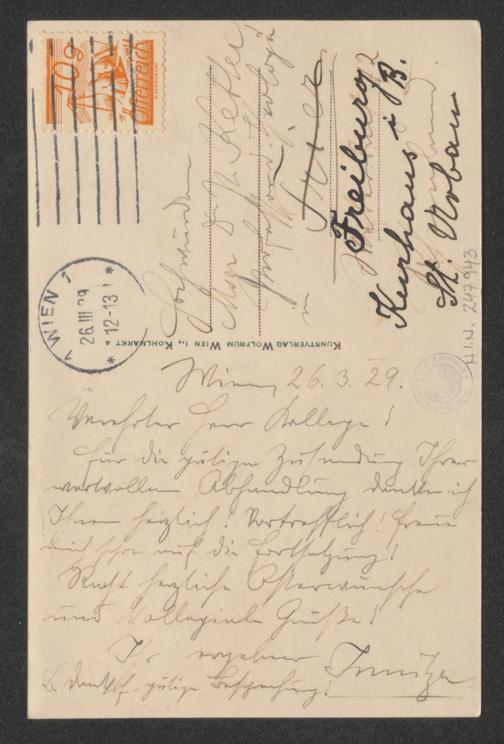 10g
Österreich
1 WIEN 1
26.III.29
12-13
Hochwürden
Msgr Dr
Professor d. Theologie
in
Trier
Freiburg i B.
Kurhaus
St. Urban
H.I.N. 247943
KUNSTVERLAG WOLFRUM WIEN I., KOHLMARKT
Wien, 26. 3. 29.
Verehrter Herr Kollege!
Für die gütige Zusendung Ihrer
wertvollen Abhandlung danke ich
Ihnen herzlich! Vortrefflich! Freue
mich schon auf die Fortsetzung!
Recht herzliche Osterwünsche
und kollegiale Grüße!
Ihr ergebener Innitzer
gütige Besprechung!